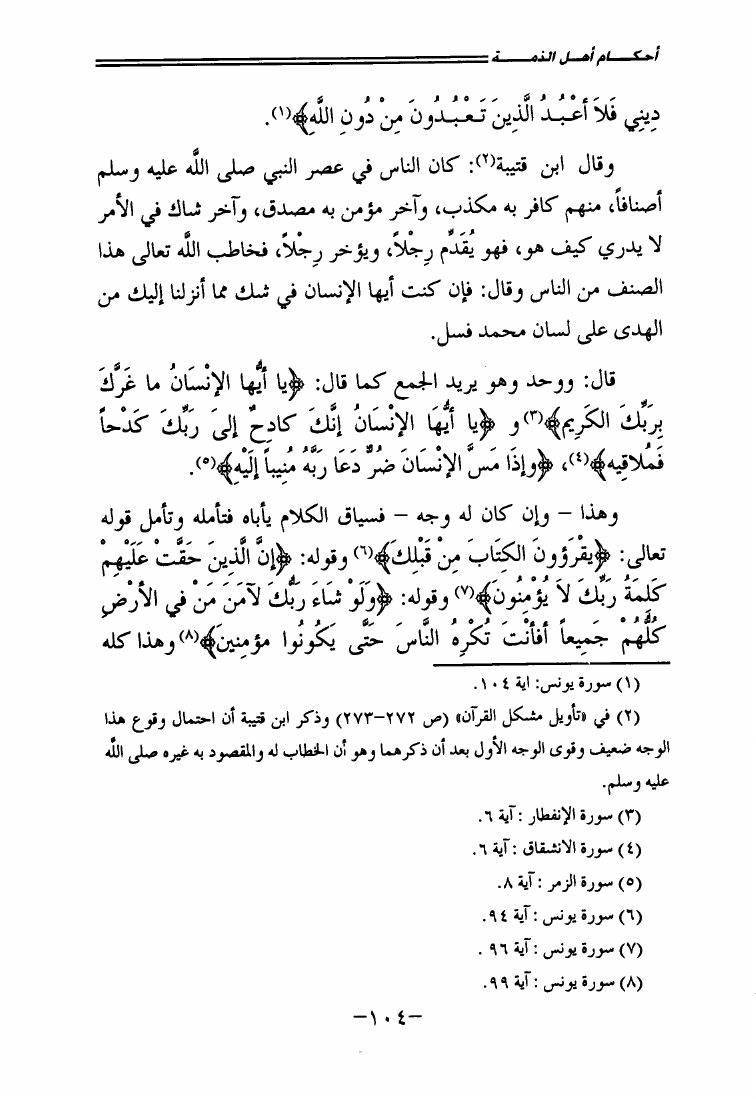 أحكـــام أهـل الذمـــــة
دِينِي فَلاَ أَعْبُدُ الَّذِينَ تَعْبُدُونَ مِنْ دُونِ اللَّهِ﴾(١).
وقال ابن قتيبة(٢): كان الناس في عصر النبي صلى الله عليه وسلم
أصنافاً، منهم كافر به مكذب، وآخر مؤمن به مصدق، وآخر شاك في الأمر
لا يدري كيف هو، فهو يُقَدِّم رِجْلاً، ويؤخر رِجْلاً، فخاطب الله تعالى هذا
الصنف من الناس وقال: فإن كنت أيها الإنسان في شك مما أنزلنا إليك من
الهدى على لسان محمد فسل.
قال: ووحد وهو يريد الجمع كما قال: ﴿يا أَيُّها الإنْسَانُ ما غَرَّكَ
بِرَبِّكَ الكَرِيمِ﴾(٣) و ﴿يا أَيُّهَا الإنْسَانُ إنَّكَ كادِحٌ إلىَ رَبِّكَ كَدْحاً
فَمُلاقِيه﴾(٤)، ﴿وإذَا مَسَّ الإنْسَانَ ضُرٌّ دَعَا رَبَّهُ مُنِيباً إلَيْهِ﴾(٥).
وهذا – وإن كان له وجه – فسياق الكلام يأباه فتأمله وتأمل قوله
تعالى: ﴿يَقْرَؤونَ الكتَابَ مِنْ قَبْلِكَ﴾(٦) وقوله: ﴿إنَّ الَّذِينَ حَقَّتْ عَلَيْهِمْ
كَلِمَةُ رَبِّكَ لاَ يُؤْمِنُونَ﴾(٧) وقوله: ﴿وَلَو شَاءَ رَبُّكَ لآمَنَ مَنْ في الأرْضِ
كُلُّهُمْ جَمِيعاً أفأنْتَ تُكْرِهُ النَّاسَ حَتَّى يَكُونُوا مؤمنين﴾(٨) وهذا كله
(١) سورة يونس: اية ١٠٤.
(٢) في «تأويل مشكل القرآن» (ص ٢٧٢–٢٧٣) وذكر ابن قتيبة أن احتمال وقوع هذا
الوجه ضعيف وقوى الوجه الأول بعد أن ذكرهما وهو أن الخطاب له والمقصود به غيره صلى الله
عليه وسلم.
(٣) سورة الإنفطار : آية ٦.
(٤) سورة الانشقاق : آية ٦.
(٥) سورة الزمر : آية ٨.
(٦) سورة يونس : آية ٩٤.
(٧) سورة يونس : آية ٩٦ .
(٨) سورة يونس : آية ٩٩.
–١٠٤–